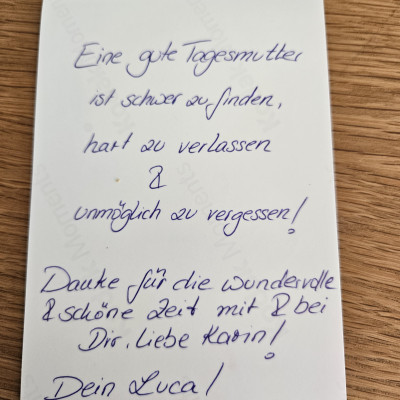 Eine gute Tagesmutter
ist schwer zu finden,
hart zu verlassen
&
unmöglich zu vergessen!
Danke für die wundervolle
& schöne Zeit mit & bei
Dir, liebe Karin!
Dein Luca!